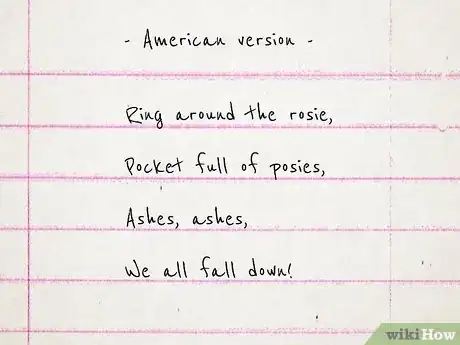 - American version -
Ring around the rosie,
Pocket full of posies,
Ashes, ashes,
We all fall down!
wikiHow